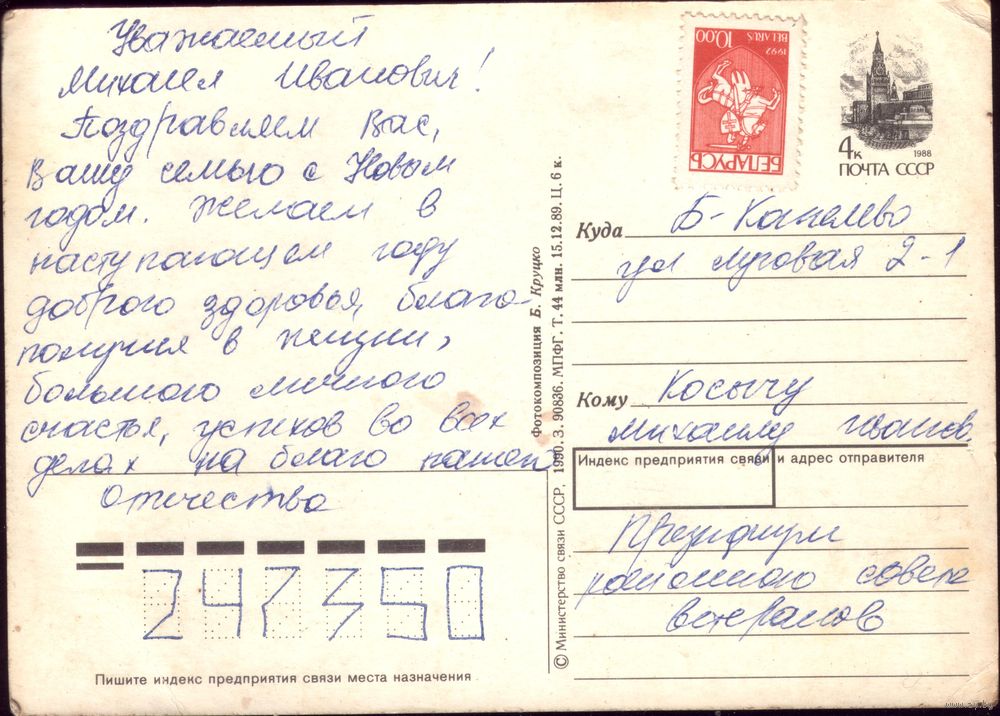 Уважаемый
Михаил Иванович!
Поздравляем Вас,
Вашу семью с Новым
годом. Желаем в
наступающем году
доброго здоровья, благо-
получия в жизни,
большого личного
счастья, успехов во всех
делах на благо нашего
Отечества
247350
Пишите индекс предприятия связи места назначения
© Министерство связи СССР. 1990. З. 90836. МПФГ. Т. 44 млн. 15.12.89. Ц. 6 к.
Фотокомпозиция Б. Круцко
1992
10.00
BELARUS
БЕЛАРУСЬ
4к
1988
ПОЧТА СССР
Куда Б-
ул Луговая 2-1
Кому Косычу
Михаилу Иванов.
Индекс предприятия связи и адрес отправителя
Президиум
районного совета
ветеранов